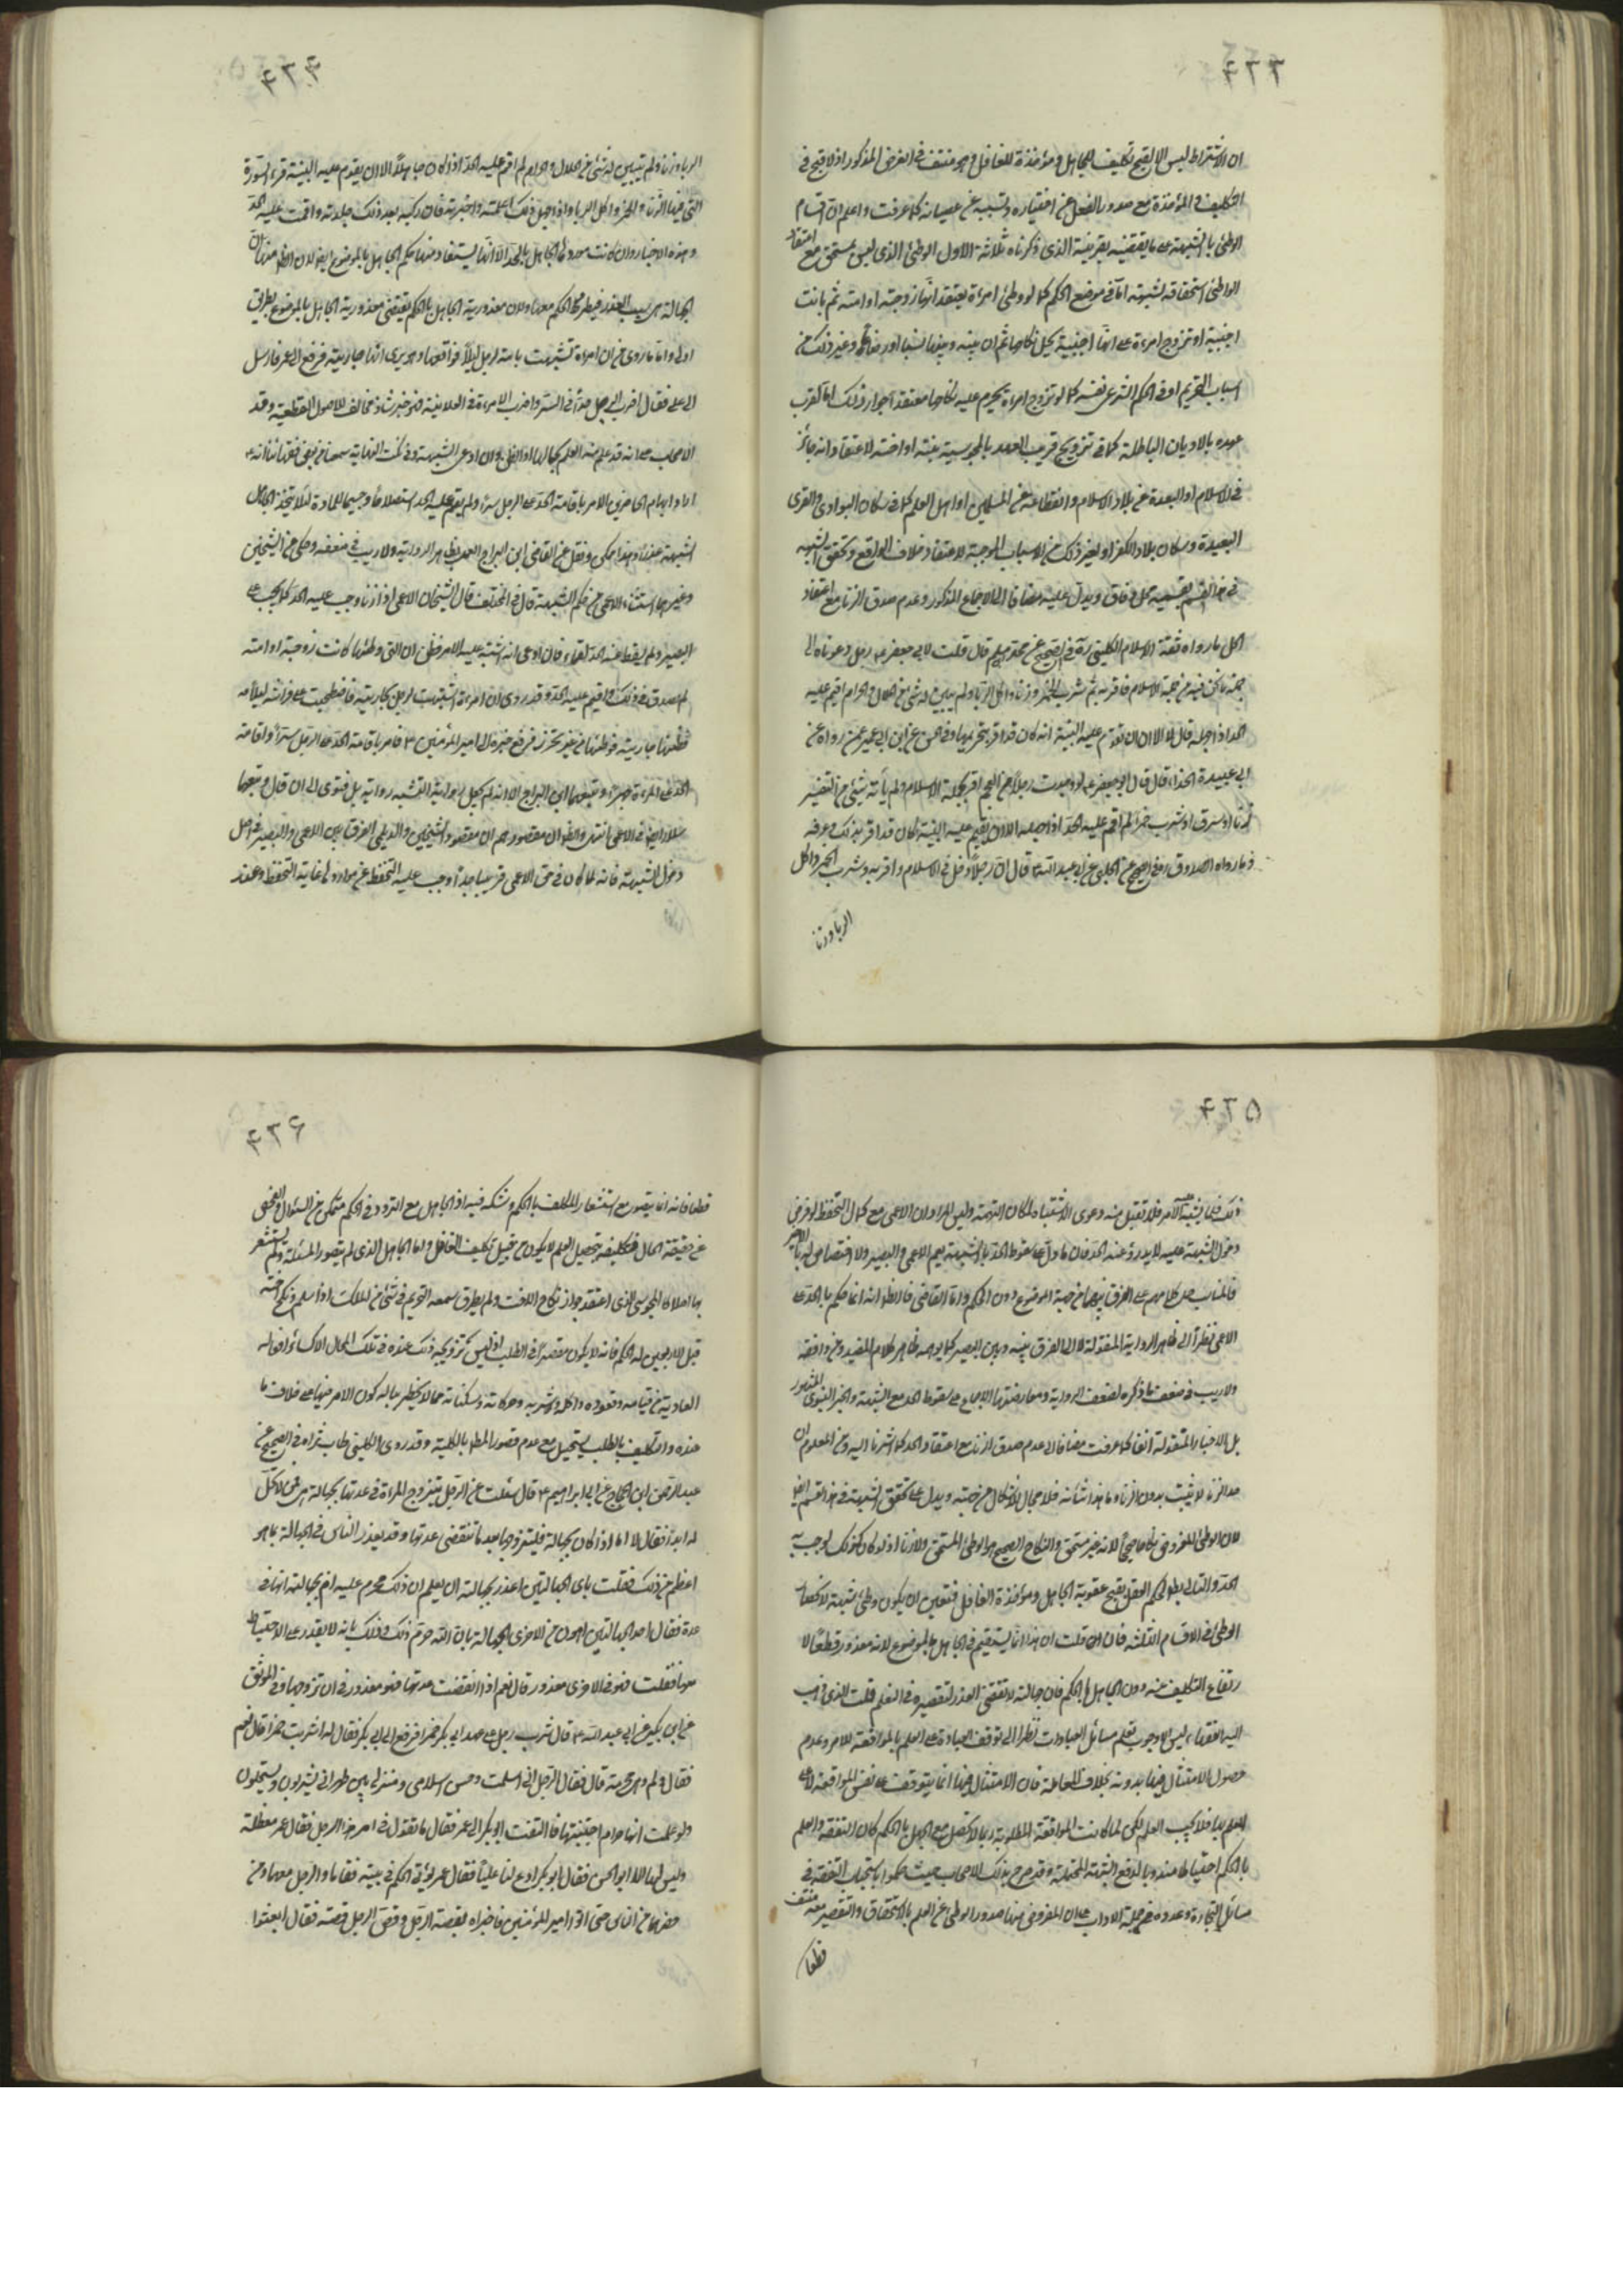 ان الاشتراط ليس الا لقبح تكليف الجاهل ومؤاخذة الغافل وهو منتف في الفرض المذكور اذ لا قبح في
التكليف والمؤاخذة مع صدور الفعل عن اختياره وتسببه عن عصيانه كما عرفت واعلم ان اقسام
الوطئ بالشبهة على ما يقتضيه بقرينة الذي ذكرناه ثلاثة الاول الوطئ الذي ليس بمستحق مع اعتقاد
الواطئ استحقاقه لشبهة اما في موضع الحكم كما لو وطئ امرءة يعتقد انها زوجته او امته ثم بانت
اجنبية او تزوج امرءة على انها اجنبية يحل نكاحها ثم ان بينه وبينها نسبا او رضاعا وغير ذلك من
اسباب التحريم او في الحكم الشرعي نفسه كما لو تزوج امرءة يحرم عليه نكاحها معتقدا جواز ذلك اما لقرب
عهده بالاديان الباطلة كما في تزويج قريب العهد بالمجوسية بنته او اخته لاعتقاد انه جائز
في الاسلام او البعدة عن بلاد الاسلام وانقطاعه عن المسلمين او اهل العلم كما في سكان البوادي والقرى
البعيدة وسكان بلاد الكفر او لغير ذلك من الاسباب الموجبة لاعتقاد خلاف الواقع وتحقق الشبهة
في هذا القسم بقسميه محل وفاق ويدل عليه مضافا الى الاجماع المذكور وعدم صدق الزنا مع اعتقاد
الحل ما رواه ثقة الاسلام الكليني ره في الصحيح عن محمد بن مسلم قال قلت لابي جعفر ع رجل دعوناه الى
جملة ما نحن فيه من جملة الاسلام فاقر به ثم شرب الخمر وزنا واكل الربا ولم يبين له شئ من الحلال والحرام اقيم عليه
الحد اذا جهله قال لا الا ان تقوم عليه البينة انه كان قد اقر بتحريمها وفي الحسن عن ابن ابي عمير عمن رواه عن
ابي عبيدة الحذاء قال قال ابو جعفر ع لو وجدت رجلا من العجم اقر بجملة الاسلام ولم يأته شئ من التفسير
زنا او سرق او شرب خمرا لم اقم عليه الحد اذا جهله الا ان تقوم عليه البينة انه كان قد اقر بذلك وعرفه
وما رواه الصدوق ره في الصحيح عن الحلبي عن ابي عبد الله ع قال ان رجلا دخل في الاسلام واقر به وشرب الخمر واكل
الربا وزنا
الربا وزنا ولم يتبين له شئ من الحلال والحرام لم اقم عليه الحد اذا كان جاهلا الا ان يقوم عليه البينة انه قرء السورة
التي فيها الزنا والخمر واكل الربا واذا جهل ذلك اعلمته واخبرته فان ركبه بعد ذلك جلدته واقمت عليه الحد
وهذه الاخبار وان كانت موردها الجاهل بالحكم الا انها يستفاد منها حكم الجاهل بالموضوع ايضا لان الظ منها ان
الجهالة هي سبب العذر فيطرد الحكم معها ولان معذورية الجاهل بالحكم يقتضي معذورية الجاهل بالموضوع بطريق
اولى واما ما روي من ان امرءة تشبهت بامة لرجل ليلا فواقعها وهو يرى انها جاريته فرفع الى عمر فارسل
الى علي فقال اضرب الرجل حدا في السر واضرب الامرءة في العلانية فهو خبر شاذ مخالف للاصول القطعية وقد
الاصحاب على انه قد علم منه العلم بحالها او الظن وان ادعى الشبهة وفي نكت النهاية سمعنا من بعض فقهائنا انه
اراد ايهام الحاضرين بالامر باقامة الحد على الرجل سرا ولم يقم عليه الحد استصلاحا وحسما للمادة لئلا يتخذ الجاهل
الشبهة عذرا وهذا ممكن ونقل عن القاضي ابن البراج العمل بظاهر الرواية ولا ريب في ضعفه وحكي عن الشيخين
وغيرهما استثناء الاعمى من حكم الشبهة قال في المختلف قال الشيخان الاعمى اذا زنا وجب عليه الحد كما يجب على
البصير ولم يسقط عنه الحد لعماه فان ادعى انه اشتبه عليه الامر فظن ان التي وطئها كانت زوجته او امته
لم يصدق في ذلك واقيم عليه الحد وقد روي ان امرءة تشبهت لرجل بجاريته فاضطجعت على فراشه ليلا
فظنها جاريته فوطئها من غير تحرز فرفع خبره الى امير المؤمنين ع فامر باقامة الحد على الرجل سرا واقامة
الحد على المرءة جهرا وتبعهما ابن البراج الا انه لم يجعل رواية التشبه رواية بل فتوى الى ان قال وتبعهما
سلار ايضا في الاعمى انتهى والظ ان مقصودهم ان مقصود الشيخين والديلمي الفرق بين الاعمى والبصير في اصل
دخول الشبهة فانه لما كان في حق الاعمى قريبا جدا وجب عليه التحفظ عن موارده غاية التحفظ وعند
ذلك فلا يشبه عليه الامر فلا تقبل منه دعوى الاشتباه لمكان التهمة وليس المراد ان الاعمى مع كمال التحفظ لو فرض
دخول الشبهة عليه لا يدرؤ عنه الحد فان ما دل على سقوط الحد بالشبهة يعم الاعمى والبصير ولا اختصاص له بالاخير
فالمناسب حمل كلامهم على الفرق بينهما من جهة الموضوع دون الحكم واما القاضي فالظ انه انما حكم بالحد على
الاعمى نظرا الى ظاهر الرواية المنقولة لا الى الفرق بينه وبين البصير كما يوهمه ظاهر كلام المفيد ومن وافقه
ولا ريب في ضعف ما ذكره لضعف الرواية ومعارضتها الاجماع على سقوط الحد مع الشبهة والخبر النبوي المشهور
بل الاخبار المنقولة انفا كما عرفت مضافا الى عدم صدق الزنا مع اعتقاد الحد كما اشرنا اليه ومن المعلوم ان
حد الزنا لا يثبت بدون الزنا وما هذا شانه فلا مجال للاشكال من جهته ويدل على تحقق الشبهة في هذا القسم ايضا
لان الوطئ المفروض نكاحا صحيحا لانه غير مستحق والنكاح الصحيح هو الوطئ المستحق ولا زنا اذ لو كان كذلك لوجب به
الحد والتالي بط لحكم العقل بقبح عقوبة الجاهل ومؤاخذة الغافل فتعين ان يكون وطئ شبهة لانحصار
الوطئ في الاقسام الثلثة فان قلت ان هذا انما يستقيم في الجاهل بالموضوع لانه معذور قطعا لا
رتفاع التكليف عنه دون الجاهل بالحكم فان جهالته لا تقتضي العذر لتقصيره في التعلم قلت الذي ذهب
اليه الفقهاء ليس الا وجوب تعلم مسائل العبادات نظرا الى توقف العبادة على العلم بالموافقة للامر وعدم
حصول الامتثال فيها بدونه بخلاف المعاملة فان الامتثال فيها انما يتوقف على نفس الموافقة لا على
العلم بها فلا يجب العلم لكن لما كانت الموافقة المطلوبة ربما لا تحصل مع الجهل بالحكم كان التفقه والعلم
بالحكم احتياطا مندوبا لدفع الشبهة المحتملة وقد صرح بذلك الاصحاب حيث حكموا باستحباب التفقه في
مسائل التجارة وعدوه من جملة الاداب على ان المفروض هنا صدور الوطئ عن العلم بالاستحقاق والتقصير معه منتف
قطعا
قطعا فانه انما يتصور مع استشعار المكلف بالحكم وشكه فيه اذ الجاهل مع التردد في الحكم متمكن من السئوال والفحص
عن حقيقة الحال فتكليفه بتحصيل العلم لا يكون من قبيل تكليف الغافل واما الجاهل الذي لم يتصور المسئلة ولم يستشعر
بها اصلا كالمجوسي الذي اعتقد جواز نكاح الاخت ولم يطرق سمعه التحريم في شئ من الملل اذا اسلم ونكح اخته
قبل ان يبين له الحكم فانه لا يكون مقصرا في الطلب اذ ليس تزويجه ذلك عنده في تلك الحال الا كسائر افعاله
العادية من قيامه وقعوده واكله وشربه وحركاته وسكناته مما لا يخطر بباله كون الامر فيها على خلاف ما
عنده والتكليف بالطلب يستحيل مع عدم تصور المط بالكلية وقد روى الكليني طاب ثراه في الصحيح عن
عبد الرحمن ابن الحجاج عن ابي ابراهيم ع قال سئلت عن الرجل يتزوج المراة في عدتها بجهالة اهي ممن لا تحل
له ابدا فقال لا اما اذا كان بجهالة فليتزوجها بعد ما تنقضي عدتها وقد يعذر الناس في الجهالة بما هو
اعظم من ذلك فقلت باي الجهالتين اعذر بجهالته ان يعلم ان ذلك محرم عليه ام بجهالته انها في
عدة فقال احد الجهالتين اهون من الاخرى الجهالة بان الله حرم ذلك وذلك بانه لا يقدر على الاحتياط
معها فقلت فهو في الاخرى معذور قال نعم اذا انقضت عدتها فهو معذور في ان تزوجها وفي الموثق
عن ابن بكير عن ابي عبد الله ع قال شرب رجل على عهد ابي بكر خمرا فرفع الى ابي بكر فقال له اشربت خمرا قال نعم
فقال ولم وهي محرمة قال فقال الرجل اني اسلمت وحسن اسلامي ومنزلي بين ظهراني قوم يشربون ويستحلون
ولو علمت انها حرام اجتنبتها فالتفت ابو بكر الى عمر فقال ما تقول في امر هذا الرجل فقال عمر معضلة
وليس لها الا ابو الحسن فقال ابو بكر ادع لنا عليا فقال عمر يؤتى الحكم في بيته فقاما والرجل معهما ومن
حضرهما من الناس حتى اتوا امير المؤمنين فاخبراه بقصة الرجل وقص الرجل قصته فقال ابعثوا